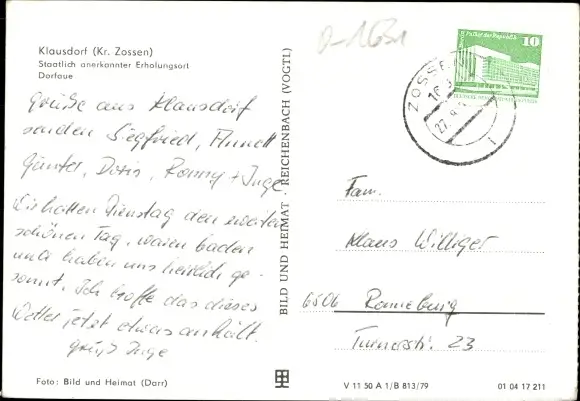 Klausdorf (Kr. Zossen)
Staatlich anerkannter Erholungsort
Dorfaue
Grüße aus Klausdorf
senden Siegfried, Annett
Günter, Doris, Ronny + Inge.
Wir hatten Dienstag den zweiten
schönen Tag, waren baden
und haben uns herrlich ge-
sonnt. Ich hoffe das dieses
Wetter jetzt etwas anhält.
Gruß Inge
Foto: Bild und Heimat (Darr)
BILD UND HEIMAT REICHENBACH (VOGTL)
0-1631
10
ZOSSEN
27.
1
Fam.
Klaus Williger
6506 Ronneburg
Turnerstr. 23
V 11 50 A 1/B 813/79
01 04 17 211